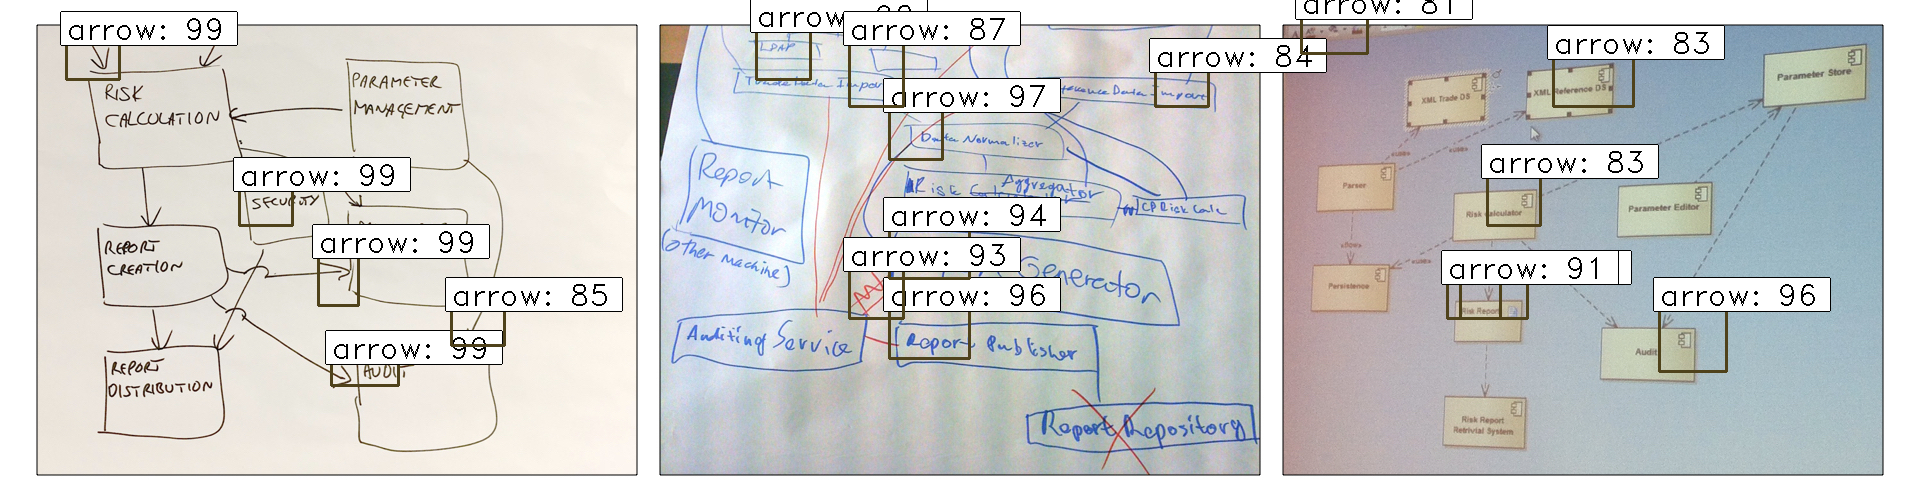 arrow: 99
RISK
CALCULATION
PARAMETER
MANAGEMENT
arrow: 99
SECURITY
arrow: 99
REPORT
CREATION
arrow: 85
arrow: 99
REPORT
DISTRIBUTION
AUDIT
arrow:
arrow: 87
arrow: 84
LDAP
Trade Data Import
Data Import
arrow: 97
Data Normalizer
Report
Monitor
(other machine)
Aggregator
Risk
CP Risk Calc
arrow: 94
arrow: 93
Generator
arrow: 96
Auditing Service
Report Publisher
Report Repository
arrow: 81
arrow: 83
Parameter Store
XML Trade DS
XML Reference DS
«use»
«use»
arrow: 83
Parser
Risk Calculator
Parameter Editor
«flow»
«use»
arrow: 91
Persistence
arrow: 96
Risk Report
Audit
Risk Report
Retrivial System